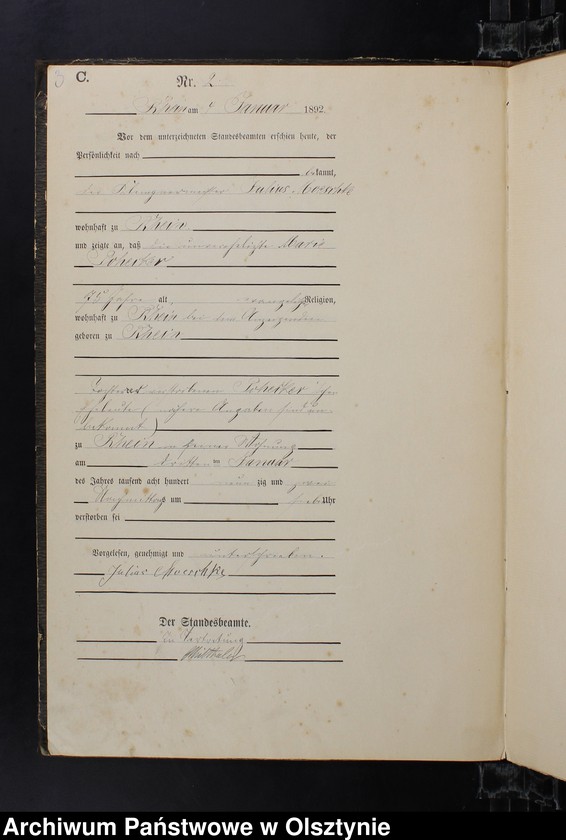 3 C.
Nr. 2
Rhein am 4 Januar 1892.
Vor dem unterzeichneten Standesbeamten erschien heute, der
Persönlichkeit nach
bekannt,
der Julius Moeschke
wohnhaft zu Rhein
und zeigte an, daß die unverehelichte Marie
75 Jahre alt, evangelischer Religion,
wohnhaft zu Rhein bei dem Anzeigenden
geboren zu Rhein
Tochter der verstorbenen
Eheleute (nähere Angaben sind un
bekannt)
zu Rhein in seiner Wohnung
am dritten Januar
des Jahres tausend acht hundert neunzig und zwei
Nachmittags um Uhr
verstorben sei
Vorgelesen, genehmigt und unterschrieben.
Julius Moeschke
Der Standesbeamte.
In Vertretung
Archiwum Państwowe w Olsztynie